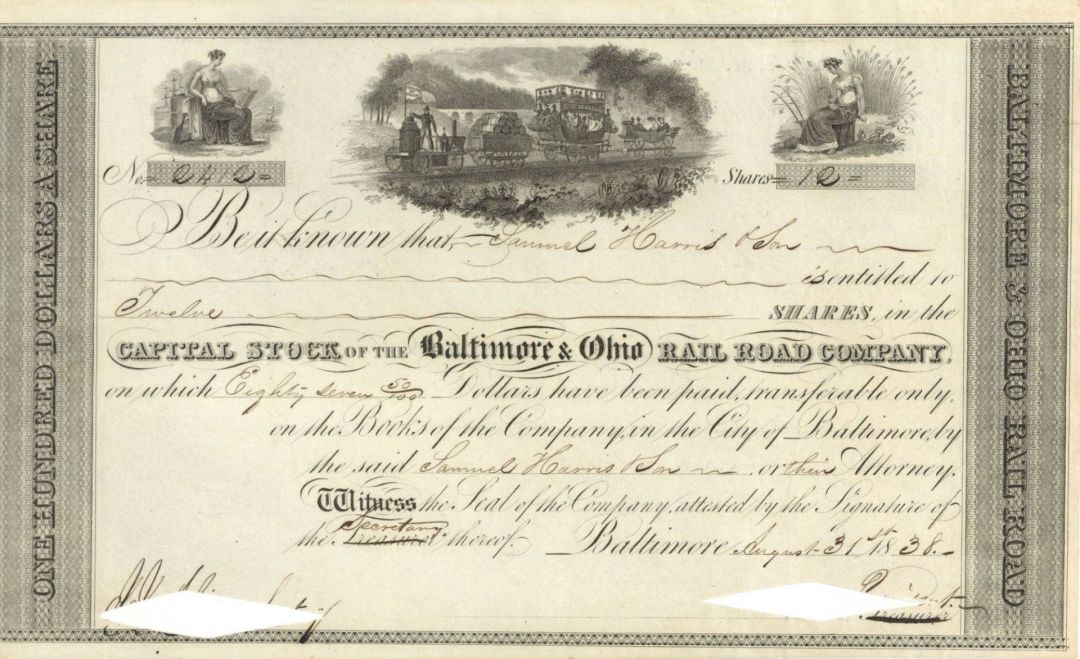 ONE HUNDRED DOLLARS A SHARE
No. 242
Shares 12
Be it known that Samuel Harris & Son
is entitled to
Twelve SHARES, in the
CAPITAL STOCK OF THE Baltimore & Ohio RAIL ROAD COMPANY,
on which Eighty seven 50/100 Dollars have been paid, transferable only,
on the Books of the Company, in the City of Baltimore, by
the said Samuel Harris & Son or their Attorney.
Witness the Seal of the Company, attested by the Signature of
the Secretary Treasurer thereof. Baltimore August 31st 1838.
President
Treasurer
BALTIMORE & OHIO RAIL ROAD